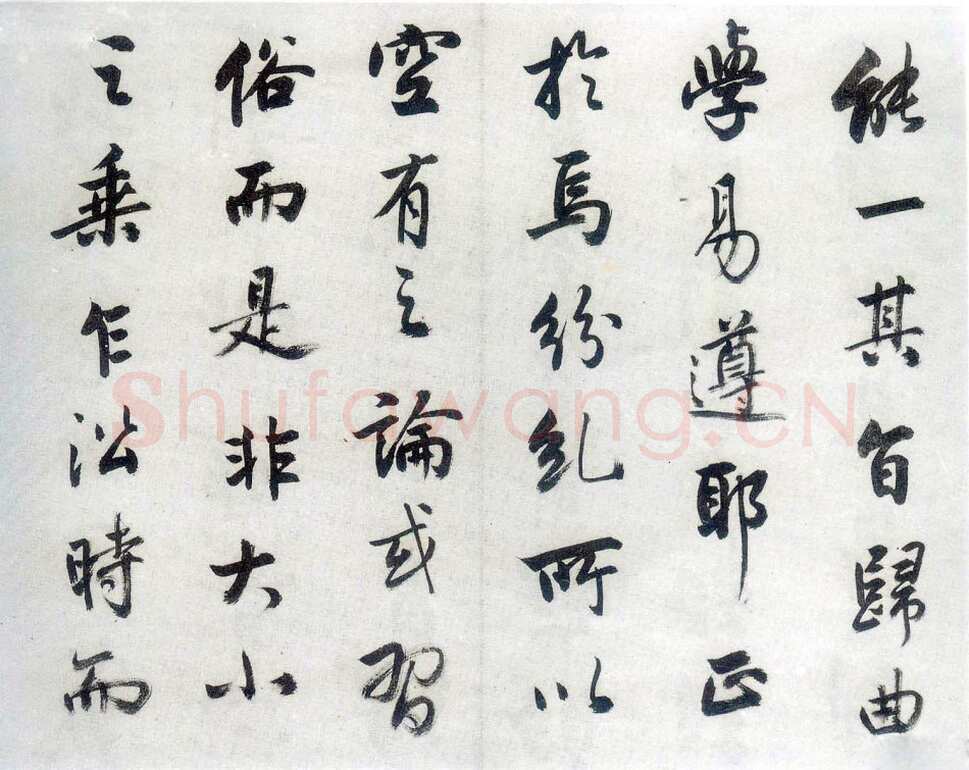 能一其旨歸曲
學易遵耶正
於焉紛糺所以
空有之論或習
俗而是非大小
之乘乍沿時而
Shufawang.CN